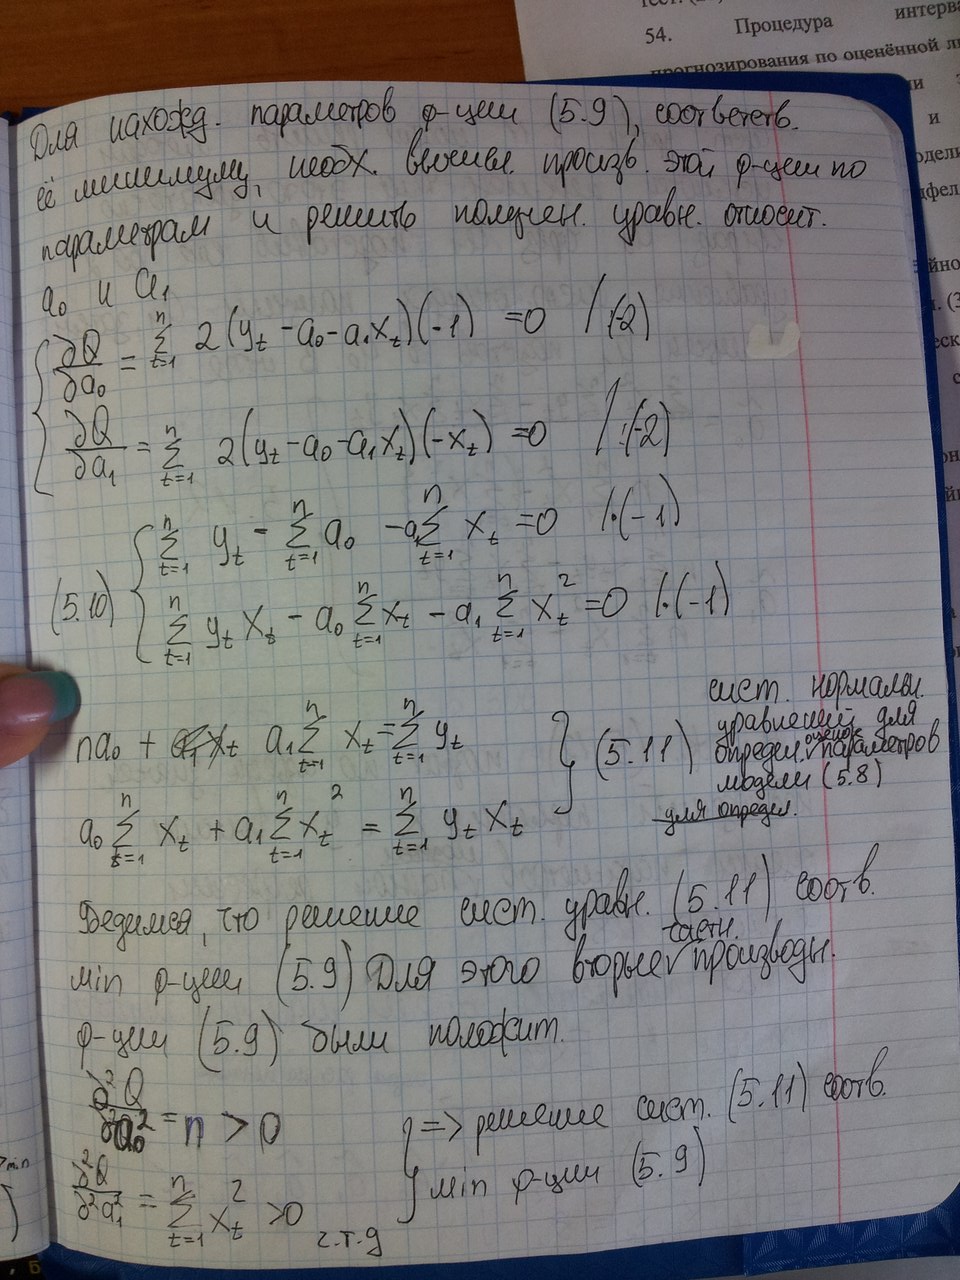 54. Процедура интерв
прогнозирования по оценённой ли
Для нахожд. параметров ф-ции (5.9), соответств.
её минимуму, необх. вычисл. произв. этой ф-ции по
параметрам и решить получен. уравн. относит.
a₀ и a₁
∂Q/∂a₀ = Σₜ₌₁ⁿ 2(yₜ - a₀ - a₁xₜ)(-1) = 0 /:(-2)
∂Q/∂a₁ = Σₜ₌₁ⁿ 2(yₜ - a₀ - a₁xₜ)(-xₜ) = 0 /:(-2)
Σₜ₌₁ⁿ yₜ - Σₜ₌₁ⁿ a₀ - a₁Σₜ₌₁ⁿ xₜ = 0 /·(-1)
(5.10)
Σₜ₌₁ⁿ yₜxₜ - a₀Σₜ₌₁ⁿ xₜ - a₁Σₜ₌₁ⁿ xₜ² = 0 /·(-1)
na₀ + a₁Σₜ₌₁ⁿ xₜ = Σₜ₌₁ⁿ yₜ
a₀Σₜ₌₁ⁿ xₜ + a₁Σₜ₌₁ⁿ xₜ² = Σₜ₌₁ⁿ yₜxₜ
(5.11)
сист. нормальн.
уравнений для
определ. оценок параметров
модели (5.8)
для определ.
Бедимся, что решение сист. уравн. (5.11) соотв.
min ф-ции (5.9) Для этого вторые частн. производн.
ф-ции (5.9) были положит.
∂²Q/∂²a₀² = n > 0
∂²Q/∂²a₁² = Σₜ₌₁ⁿ xₜ² > 0
=> решение сист. (5.11) соотв.
min ф-ции (5.9)
ч.т.д